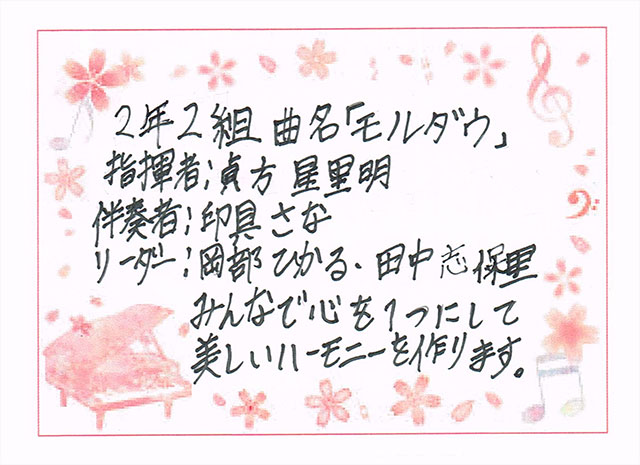 2年2組 曲名「モルダウ」
指揮者:貞方 星里明
伴奏者:印具 さな
リーダー:岡部 ひかる・田中 志保里
みんなで心を1つにして
美しいハーモニーを作ります。